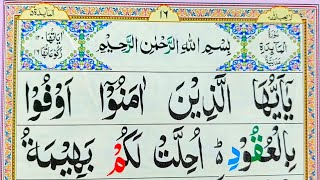 ١٦
بِسْمِ اللّٰهِ الرَّحْمٰنِ الرَّحِيْمِ
يٰۤاَيُّهَا الَّذِيْنَ اٰمَنُوْۤا اَوْفُوْا
بِالْعُقُوْدِ ؕ اُحِلَّتْ لَكُمْ بَهِيْمَةُ